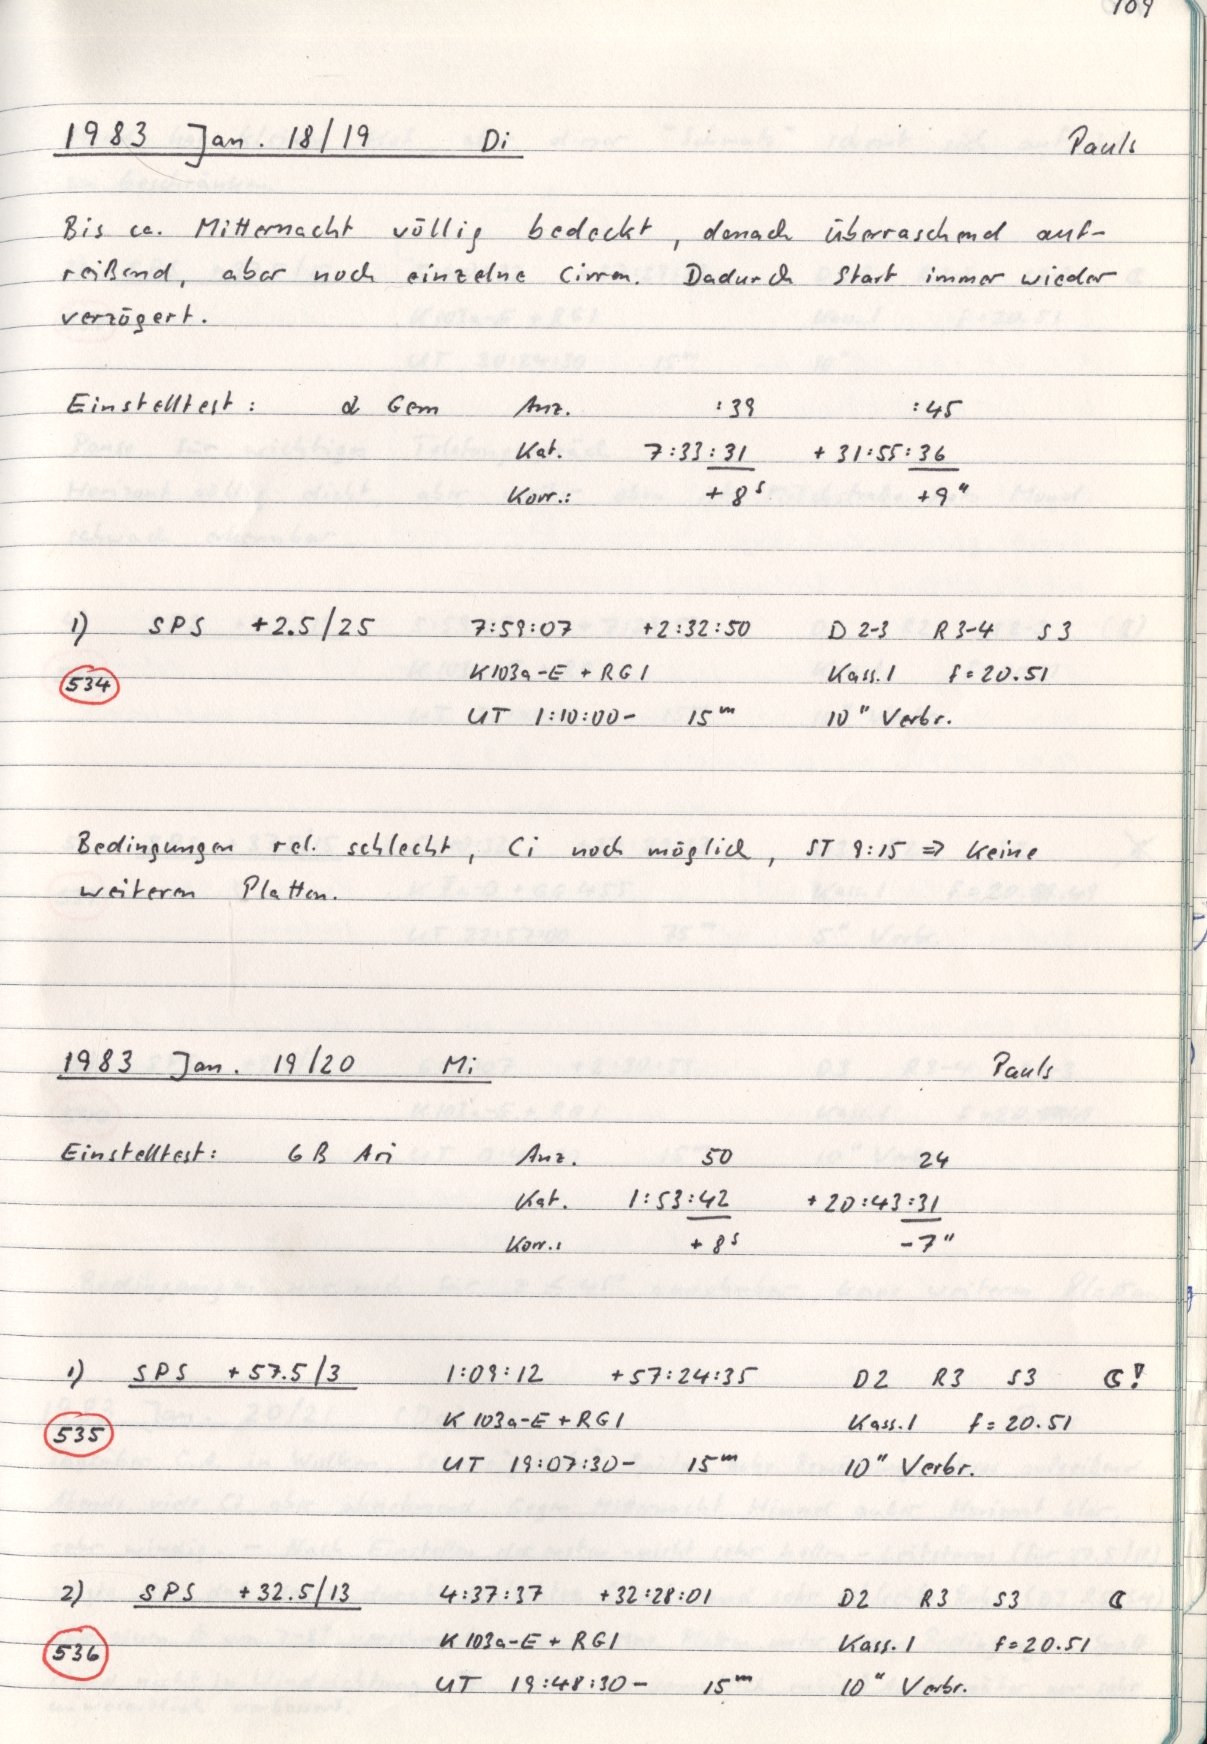 109
1983 Jan. 18/19 Di Pauls
Bis ca. Mitternacht völlig bedeckt, danach überraschend auf-
reißend, aber noch einzelne Cirren. Dadurch Start immer wieder
verzögert.
Einstelltest: α Gem Anz. :39 :45
Kat. 7:33:31 +31:55:36
Korr.: +8ˢ +9"
1) SPS +2.5/25 7:59:07 +2:32:50 D 2-3 R 3-4 S 3
534 K103a-E + RG1 Kass.1 f=20.51
UT 1:10:00- 15ᵐ 10" Verbr.
Bedingungen rel. schlecht, Ci noch möglich, ST 9:15 ⇒ Keine
weiteren Platten.
1983 Jan. 19/20 Mi Pauls
Einstelltest: 6 β Ari Anz. 50 24
Kat. 1:53:42 +20:43:31
Korr.: +8ˢ -7"
1) SPS +57.5/3 1:09:12 +57:24:35 D2 R3 S3 ☾!
535 K103a-E + RG1 Kass.1 f=20.51
UT 19:07:30- 15ᵐ 10" Verbr.
2) SPS +32.5/13 4:37:37 +32:28:01 D2 R3 S3 ☾
536 K103a-E + RG1 Kass.1 f=20.51
UT 19:48:30- 15ᵐ 10" Verbr.